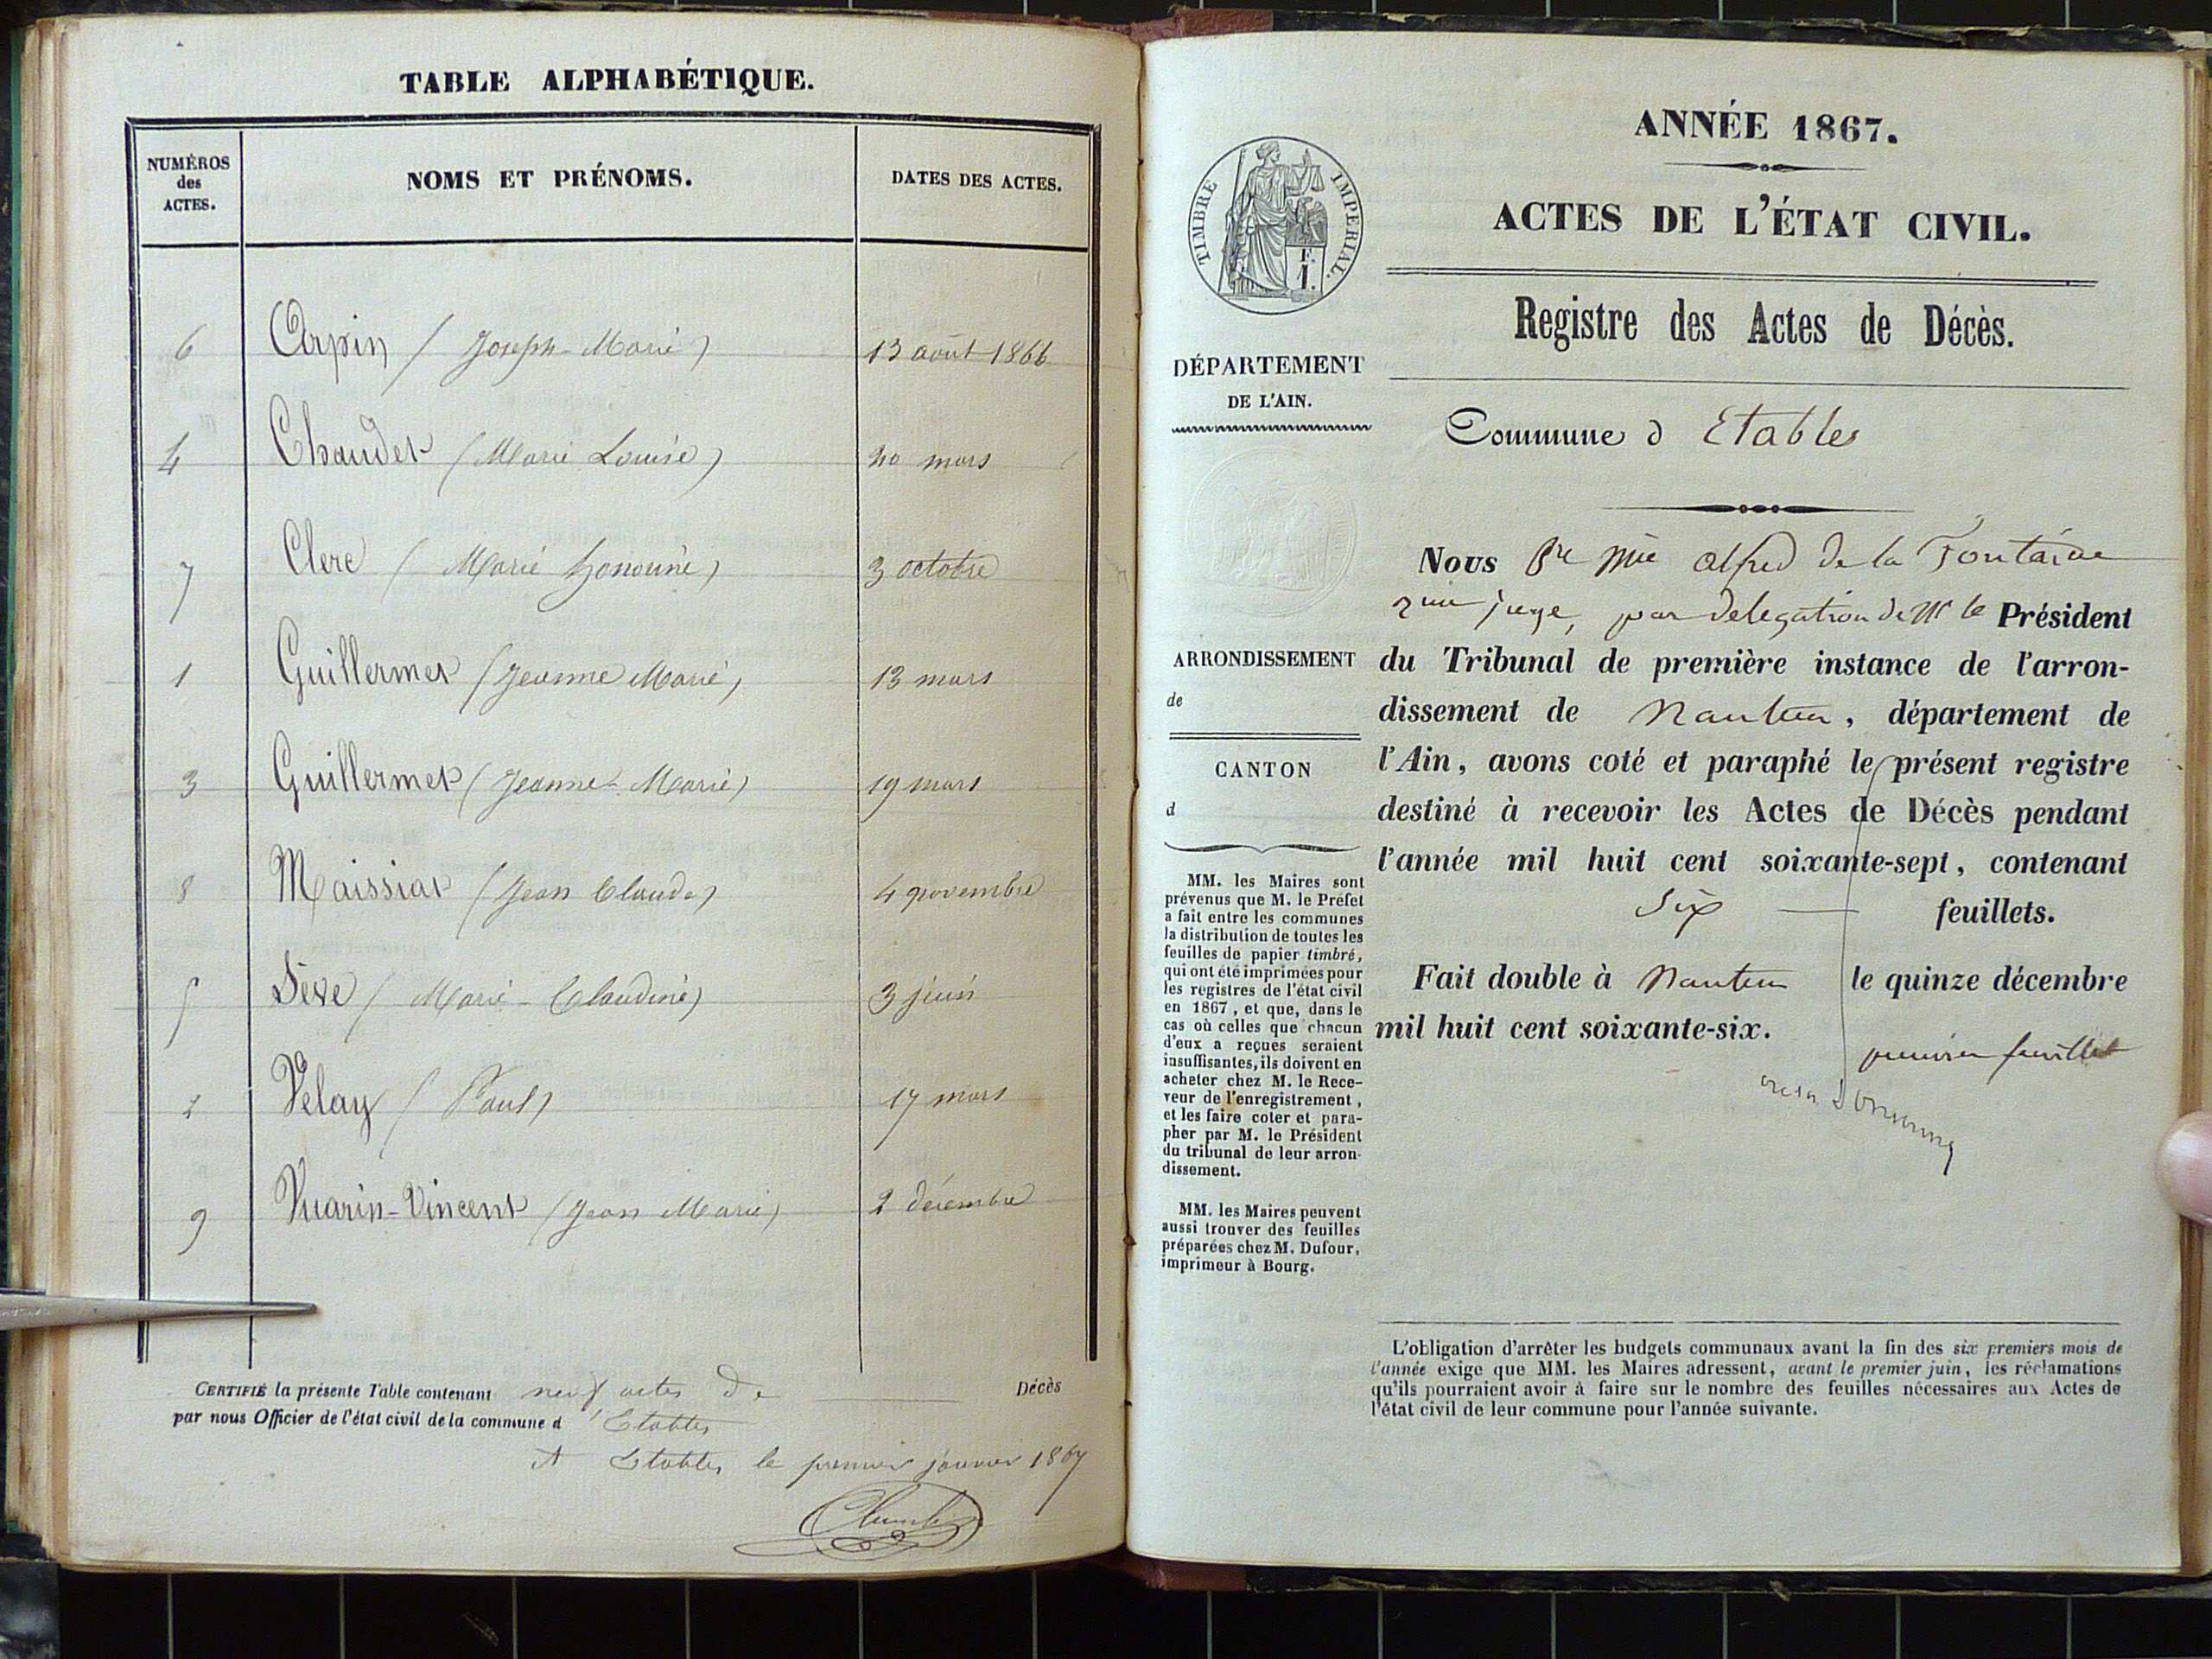 TABLE ALPHABÉTIQUE.
NUMÉROS des ACTES.
NOMS ET PRÉNOMS.
DATES DES ACTES.
6 Carpin (Joseph-Marie) 13 août 1866
4 Chaudet (Marie Louise) 20 mars
7 Clerc (Marie Honorine) 3 octobre
1 Guillermet (Jeanne Marie) 13 mars
3 Guillermet (Jeanne-Marie) 19 mars
8 Maissiat (Jean Claude) 4 novembre
5 Sève (Marie-Claudine) 3 juin
2 Velay (Paul) 17 mars
9 Vuarin-Vincent (Jean Marie) 2 décembre
CERTIFIÉ la présente Table contenant neuf actes de Décès
par nous Officier de l'état civil de la commune d'Etables
A Etables le premier janvier 1867
TIMBRE IMPERIAL.
F.
1.
DÉPARTEMENT
DE L'AIN.
ARRONDISSEMENT
de
CANTON
d
MM. les Maires sont
prévenus que M. le Préfet
a fait entre les communes
la distribution de toutes les
feuilles de papier timbré,
qui ont été imprimées pour
les registres de l'état civil
en 1867, et que, dans le
cas où celles que chacun
d'eux a reçues seraient
insuffisantes, ils doivent en
acheter chez M. le Rece-
veur de l'enregistrement,
et les faire coter et para-
pher par M. le Président
du tribunal de leur arron-
dissement.
MM. les Maires peuvent
aussi trouver des feuilles
préparées chez M. Dufour,
imprimeur à Bourg.
ANNÉE 1867.
ACTES DE L'ÉTAT CIVIL.
Registre des Actes de Décès.
Commune d Etables
Nous Alfred de la Fontaine
juge, par delegation de Mr le Président
du Tribunal de première instance de l'arron-
dissement de Nantua, département de
l'Ain, avons coté et paraphé le présent registre
destiné à recevoir les Actes de Décès pendant
l'année mil huit cent soixante-sept, contenant
six feuillets.
Fait double à Nantua le quinze décembre
mil huit cent soixante-six.
premier feuillet
L'obligation d'arrêter les budgets communaux avant la fin des six premiers mois de
l'année exige que MM. les Maires adressent, avant le premier juin, les réclamations
qu'ils pourraient avoir à faire sur le nombre des feuilles nécessaires aux Actes de
l'état civil de leur commune pour l'année suivante.